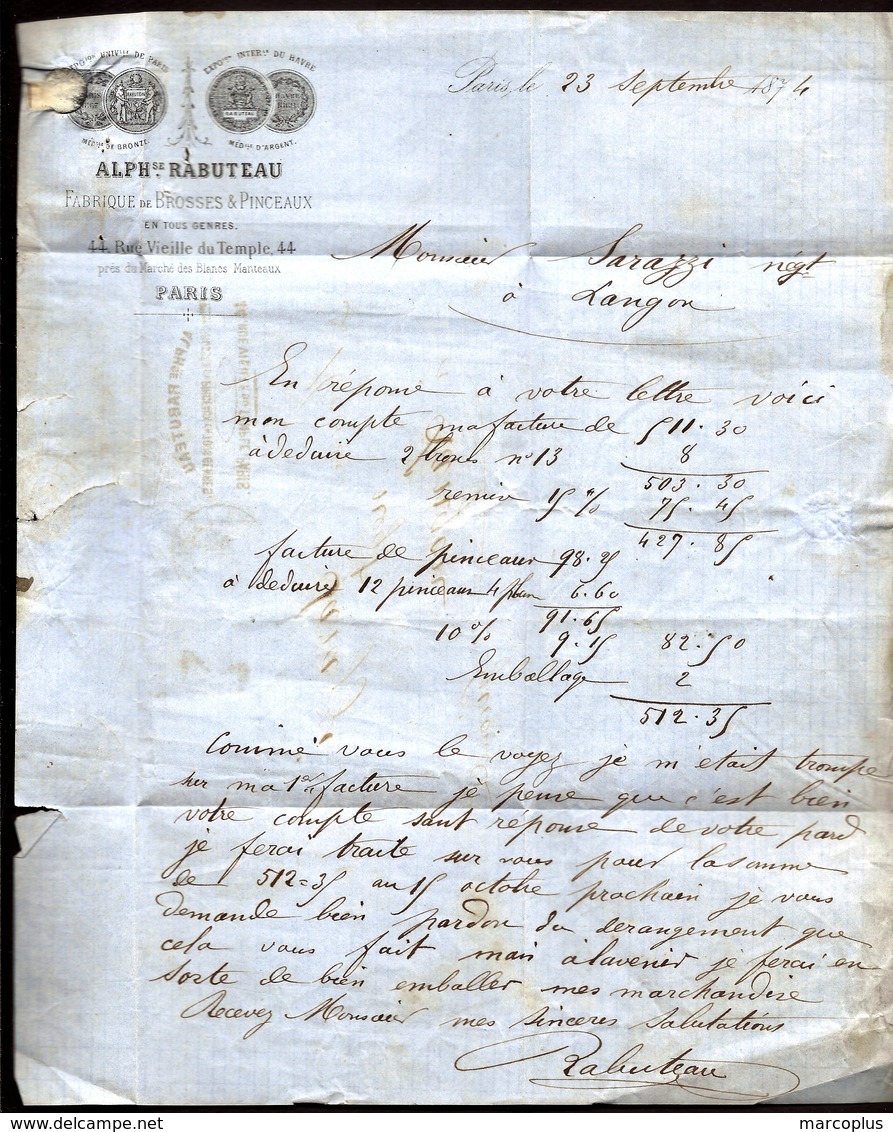 EXPO.ion UNIV.lle DE PARIS
EXPO.on INTER.le DU HAVRE
MÉD.lle DE BRONZE.
MÉD.lle D'ARGENT.
Paris, le 23 Septembre 1874
ALPH.SE RABUTEAU
FABRIQUE DE BROSSES & PINCEAUX
EN TOUS GENRES.
44, Rue Vieille du Temple, 44
près du Marché des Blancs Manteaux
PARIS
Monsieur Sarazzi négt
à Langon
En réponse à votre lettre voici
mon compte ma facture de 511.30
à deduire 2 n° 13 8
503.30
remise 15 % 75.45
427.85
facture de pinceaux 98.25
à deduire 12 pinceaux 4 6.60
91.65
10 % 9.15 82.50
Emballage 2
512.35
Comme vous le voyez je m'etait trompe
sur ma 1er facture je pense que c'est bien
votre compte sauf réponse de votre pard
je ferai traite sur vous pour la somme
de 512=35 au 15 octobre prochain je vous
demande bien pardon du derangement que
cela vous fait mais à lavenir je ferai en
sorte de bien emballer mes marchandise
Recevez Monsieur mes sinceres salutations
Rabuteau
ALPHSE RABUTEAU
marcoplus